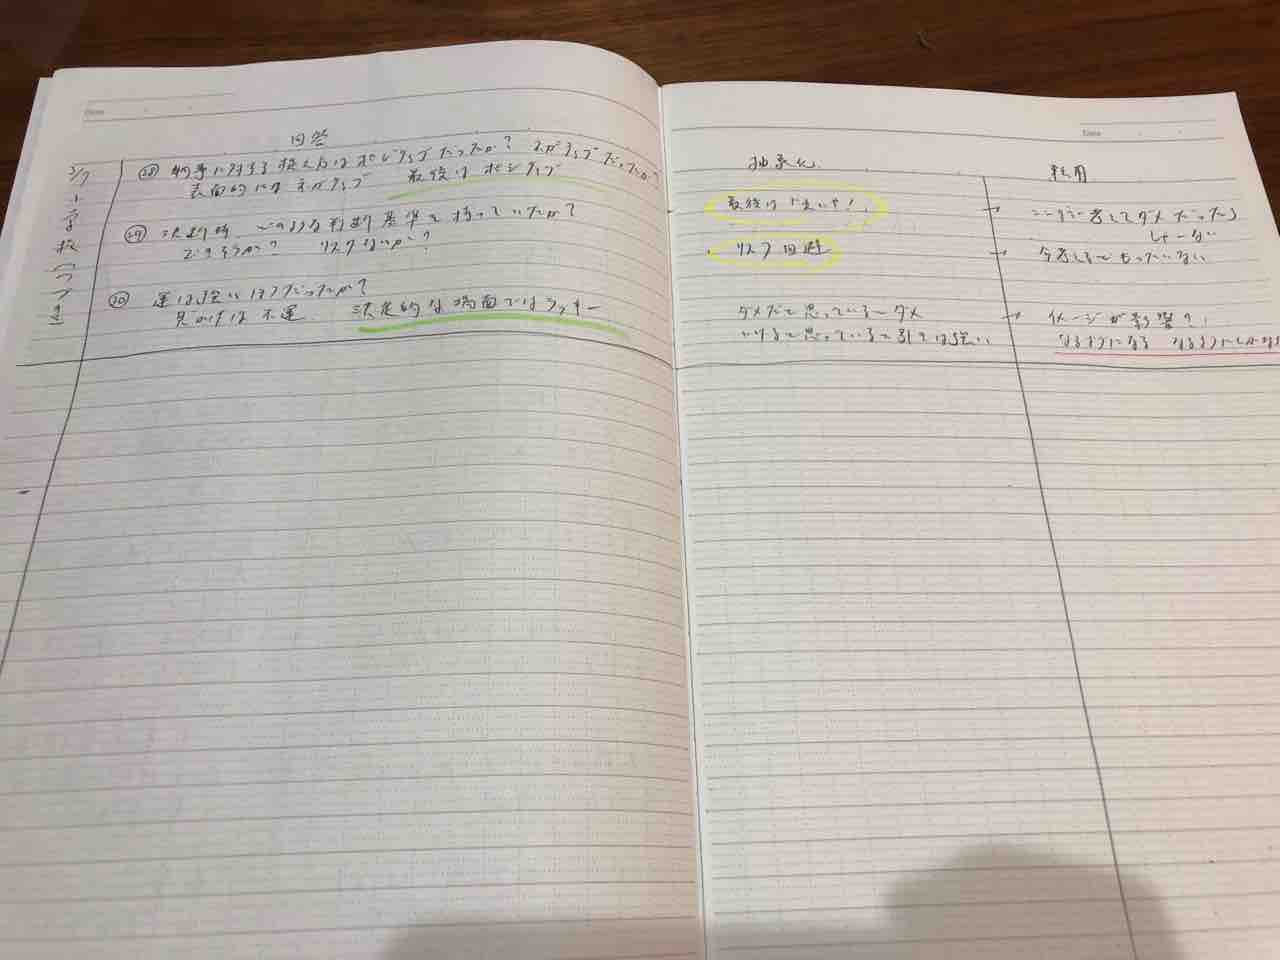 Date
回答
3/7
小学校(ラフ版)
㉘ 物事に対する捉え方はポジティブだったか? ネガティブだったか?
表面的にはネガティブ 最後はポジティブ
㉙ 決断時、どのような判断基準を持っていたか?
できそうか? リスクないか?
㉚ 運は強いほうだったか?
見かけは不運 決定的な場面ではラッキー
Date
抽象化
転用
最後は
考えてダメだったら
しゃーない
リスク回避
もったいない
ダメだと思っているとダメ
いけると思っていると引きは強い
イメージが影響?!
なるようになる なるようにしかなら